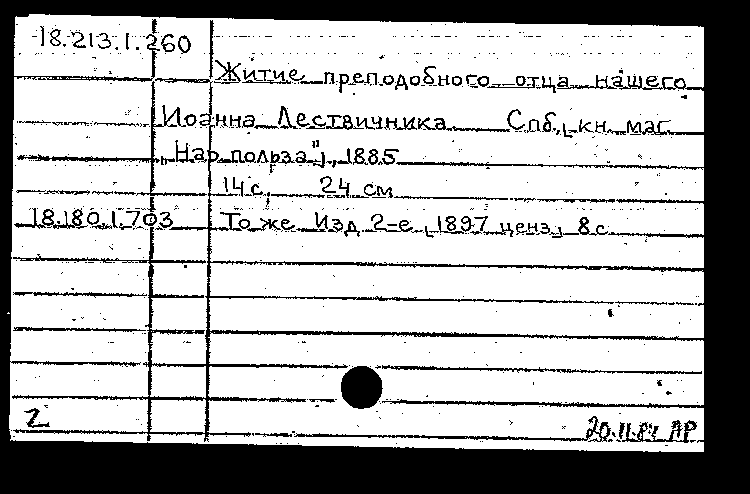 18.213.1.260
Житие преподобного отца нашего
Иоанна Лествичника Спб., кн. маг.
„Нар. польза", 1885
14 с., 24 см
18.180.1.703 То же Изд. 2-е [1897 ценз.] 8 с.
2
20.11.84 АР